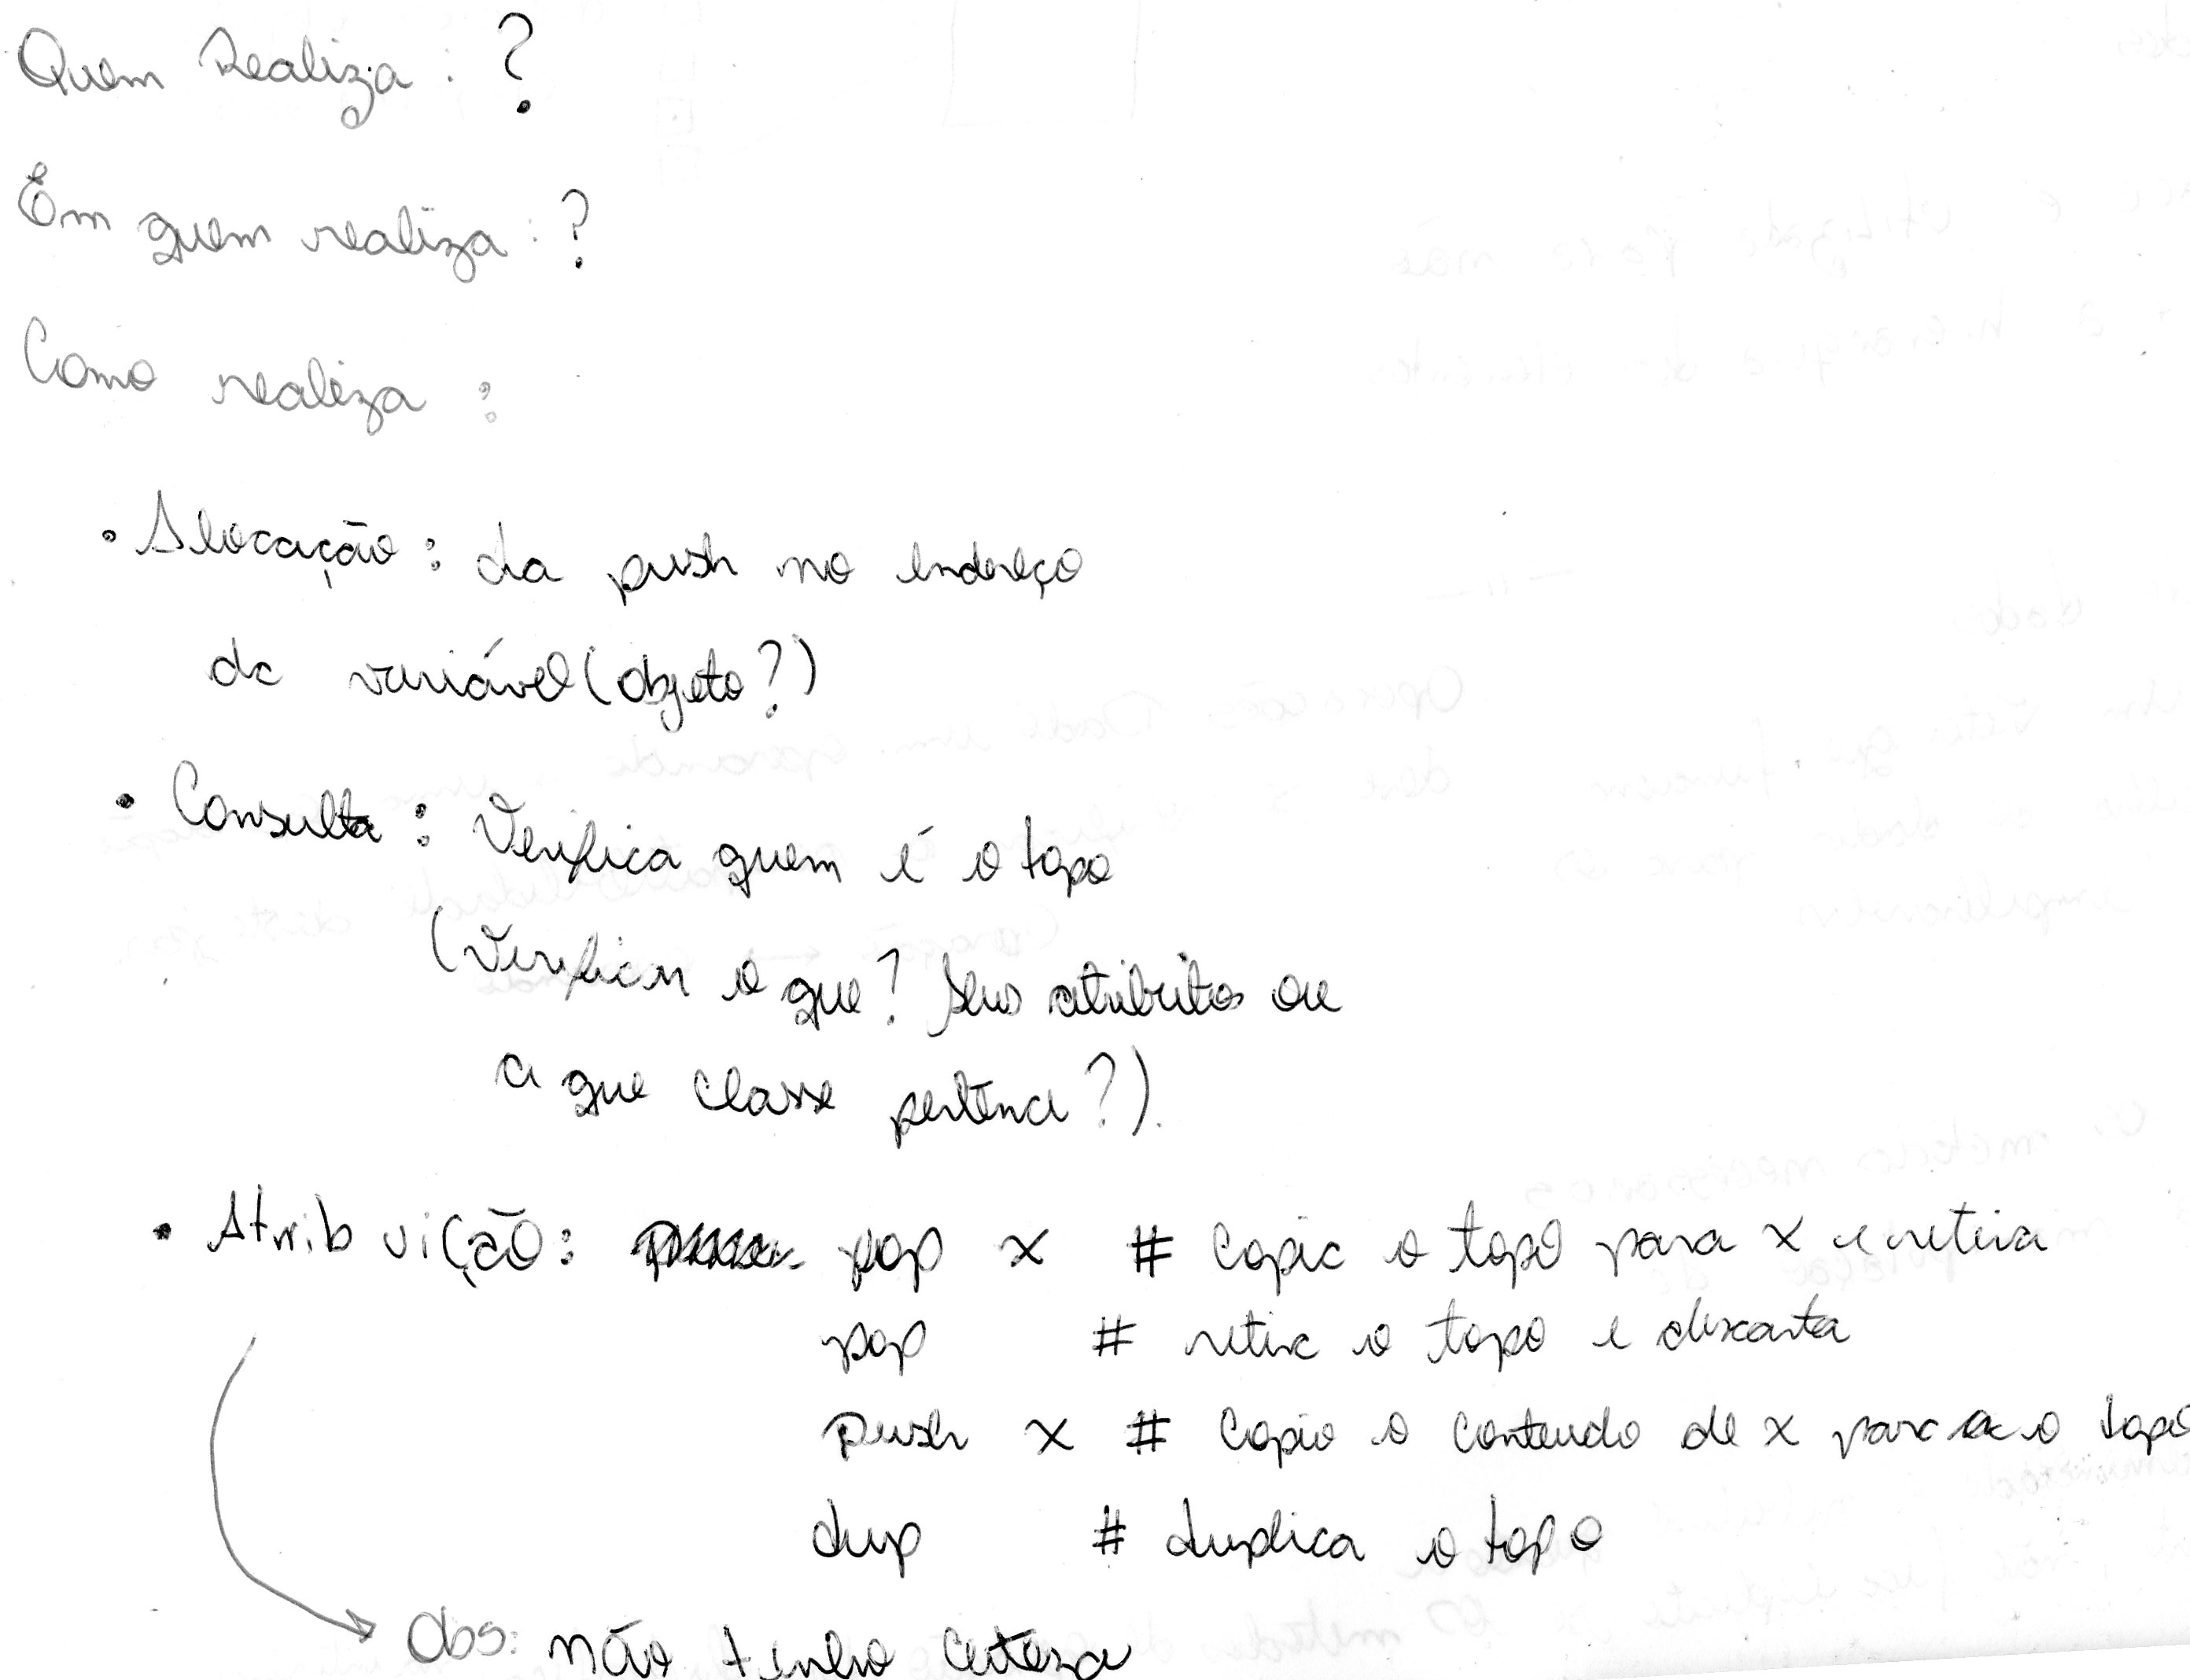 Quem Realiza : ?
Em quem realiza : ?
Como realiza :
• Alocação : da push no endereço
da variável (objeto?)
• Consulta : Verifica quem é o topo
(Verificar o que? Seus atributos ou
a que classe pertence?).
• Atribuição: pop x # Copia o topo para x e retira
pop # retira o topo e descarta
push x # Copio o conteudo de x para o topo
dup # duplica o topo
Obs: não tenho certeza